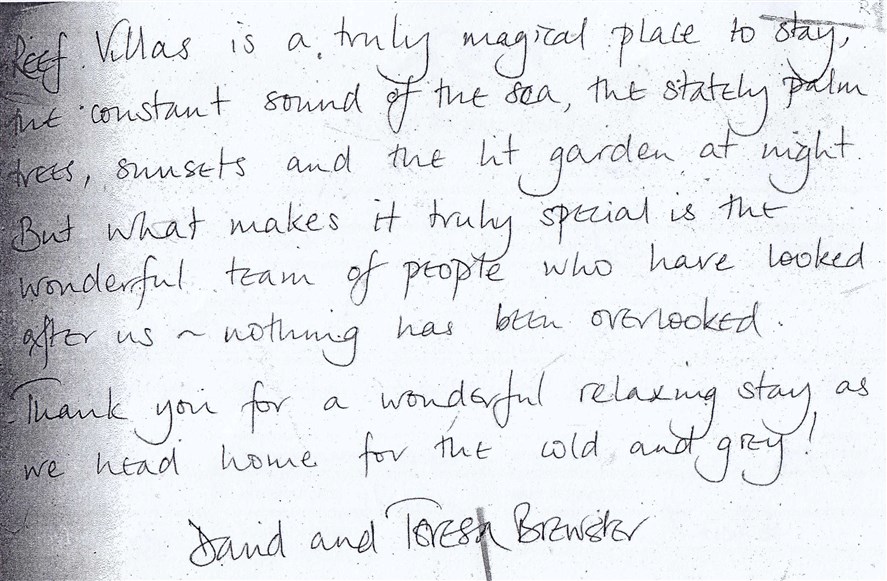 Reef Villas is a truly magical place to stay,
the constant sound of the sea, the stately palm
trees, sunsets and the lit garden at night.
But what makes it truly special is the
wonderful team of people who have looked
after us ~ nothing has been overlooked.
Thank you for a wonderful relaxing stay as
we head home for the cold and grey!
David and Teresa Brewster